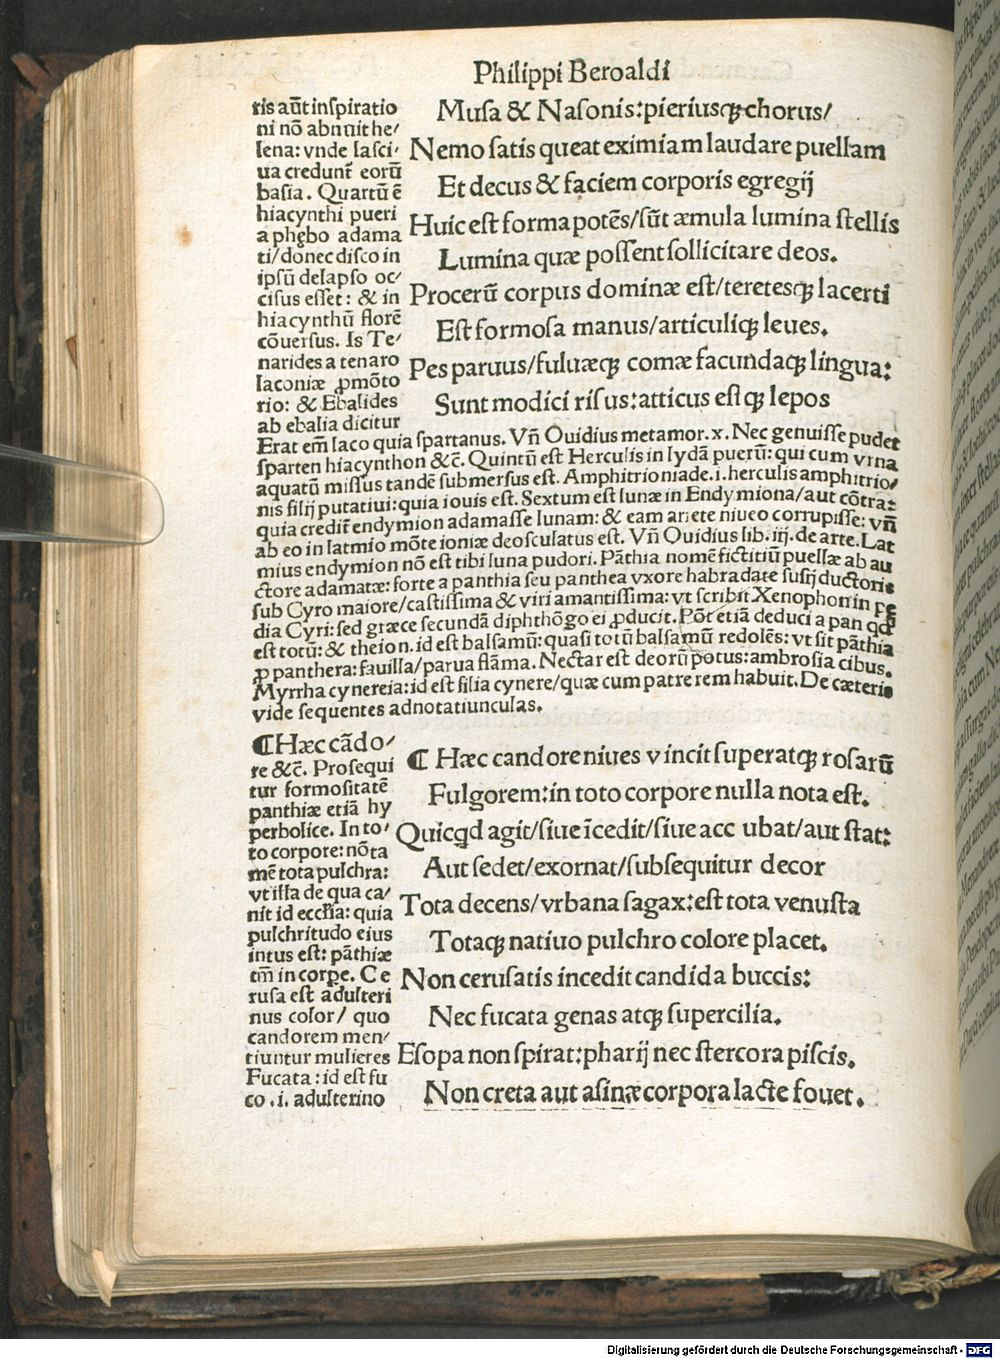 Philippi Beroaldi
Musa & Nasonis:pieriusqꝫ chorus/
Nemo satis queat eximiam laudare puellam
Et decus & faciem corporis egregij
Huic est forma potēs/sūt æmula lumina stellis
Lumina quæ possent sollicitare deos.
Procerū corpus dominæ est/teretesqꝫ lacerti
Est formosa manus/articuliqꝫ leues.
Pes paruus/fuluæqꝫ comæ facundaqꝫ lingua:
Sunt modici risus:atticus estqꝫ lepos
ris aūt inspiratio
ni nō abnuit he/
lena: vnde lasci/
ua credunt̄ eorū
basia. Quartū ē
hiacynthi pueri
a phębo adama
ti/donec disco in
ipsū delapso oc/
cisus esset: & in
hiacynthū florē
cōuersus. Is Te/
narides a tenaro
laconiæ ꝓmōto
rio: & Ebalides
ab ebalia dicitur
Erat em̄ laco quia spartanus. Vn̄ Ouidius metamor.x. Nec genuisse pudet
sparten hiacynthon &c̄. Quintū est Herculis in lydā puerū: qui cum vrna
aquatū missus tandē submersus est. Amphitrioniade.i.herculis amphitrio/
nis filij putatiui:quia iouis est. Sextum est lunæ in Endymiona/aut cōtra:
quia credit̄ endymion adamasse lunam: & eam ariete niueo corrupisse: vn̄
ab eo in latmio mōte ioniæ deosculatus est. Vn̄ Ouidius lib.iij.de arte.Lat
mius endymion nō est tibi luna pudori. Pāthia nomē fictitiū puellæ ab au
ctore adamatæ: forte a panthia seu panthea vxore habradate susij ductoris
sub Cyro maiore/castissima & viri amantissima: vt scribit Xenophon in pę
dia Cyri: sed græce secundā diphthōgo ei ꝓducit. Pōt etiā deduci a pan qd̄
est totū: & theion.id est balsamū: quasi totū balsamū redolēs: vt sit pāthia
ꝓ panthera: fauilla/parua flāma. Nectar est deorū potus:ambrosia cibus.
Myrrha cynereia:id est filia cynere/quæ cum patre rem habuit. De cæteris
vide sequentes adnotatiunculas.
¶ Hæc candore niues vincit superatqꝫ rosarū
Fulgorem:in toto corpore nulla nota est.
Quicqd agit/siue īcedit/siue acc ubat/aut stat:
Aut sedet/exornat/subsequitur decor
Tota decens/vrbana sagax:est tota venusta
Totaqꝫ natiuo pulchro colore placet.
Non cerusatis incedit candida buccis:
Nec fucata genas atqꝫ supercilia.
Esopa non spirat:pharij nec stercora piscis.
Non creta aut asinæ corpora lacte fouet.
¶Hæc cādo/
re &c̄. Prosequi
tur formositatē
panthiæ etiā hy
perbolice. In to/
to corpore: nōta
mē tota pulchra:
vt illa de qua ca/
nit id eccl̄ia: quia
pulchritudo eius
intus est: pāthiæ
tm̄ in corpe. Ce
rusa est adulteri
nus color/ quo
candorem men/
tiuntur mulieres
Fucata: id est fu
co .i. adulterino
Digitalisierung gefördert durch die Deutsche Forschungsgemeinschaft - DFG